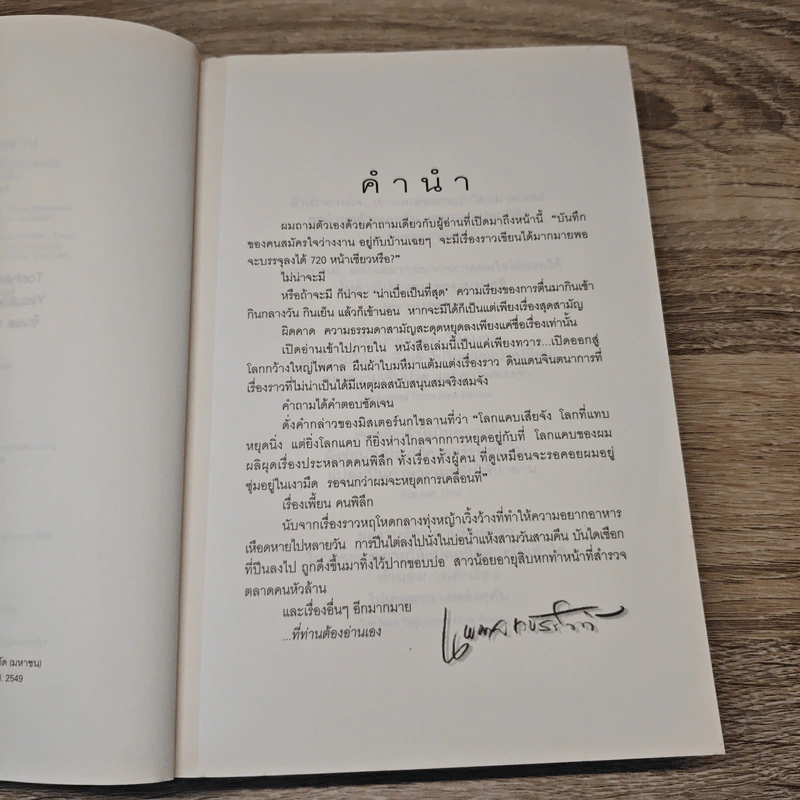 คำนำ
ผมถามตัวเองด้วยคำถามเดียวกับผู้อ่านที่เปิดมาถึงหน้านี้ “บันทึก
ของคนสมัครใจว่างงาน อยู่กับบ้านเฉยๆ จะมีเรื่องราวเขียนได้มากมายพอ
จะบรรจุลงได้ 720 หน้าเชียวหรือ?”
ไม่น่าจะมี
หรือถ้าจะมี ก็น่าจะ ‘น่าเบื่อเป็นที่สุด’ ความเรียงของการตื่นมากินเช้า
กินกลางวัน กินเย็น แล้วก็เข้านอน หากจะมีได้ก็เป็นแต่เพียงเรื่องสุดสามัญ
ผิดคาด ความธรรมดาสามัญสะดุดหยุดลงเพียงแค่ชื่อเรื่องเท่านั้น
เปิดอ่านเข้าไปภายใน หนังสือเล่มนี้เป็นแค่เพียงทวาร...เปิดออกสู่
โลกกว้างใหญ่ไพศาล ผืนผ้าใบมหึมาแต้มแต่งเรื่องราว ดินแดนจินตนาการที่
เรื่องราวที่ไม่น่าเป็นได้มีเหตุผลสนับสนุนสมจริงสมจัง
คำถามได้คำตอบชัดเจน
ดั่งคำกล่าวของมิสเตอร์นกไขลานที่ว่า “โลกแคบเสียจัง โลกที่แทบ
หยุดนิ่ง แต่ยิ่งโลกแคบ ก็ยิ่งห่างไกลจากการหยุดอยู่กับที่ โลกแคบของผม
ผลิผุดเรื่องประหลาดคนพิลึก ทั้งเรื่องทั้งผู้คน ที่ดูเหมือนจะรอคอยผมอยู่
ซุ่มอยู่ในเงามืด รอจนกว่าผมจะหยุดการเคลื่อนที่”
เรื่องเพี้ยน คนพิลึก
นับจากเรื่องราวหฤโหดกลางทุ่งหญ้าเวิ้งว้างที่ทำให้ความอยากอาหาร
เหือดหายไปหลายวัน การปีนไต่ลงไปนั่งในบ่อน้ำแห้งสามวันสามคืน บันไดเชือก
ที่ปีนลงไป ถูกดึงขึ้นมาทิ้งไว้ปากขอบบ่อ สาวน้อยอายุสิบหกทำหน้าที่สำรวจ
ตลาดคนหัวล้าน
และเรื่องอื่นๆ อีกมากมาย
...ที่ท่านต้องอ่านเอง
(มหาชน)
2549